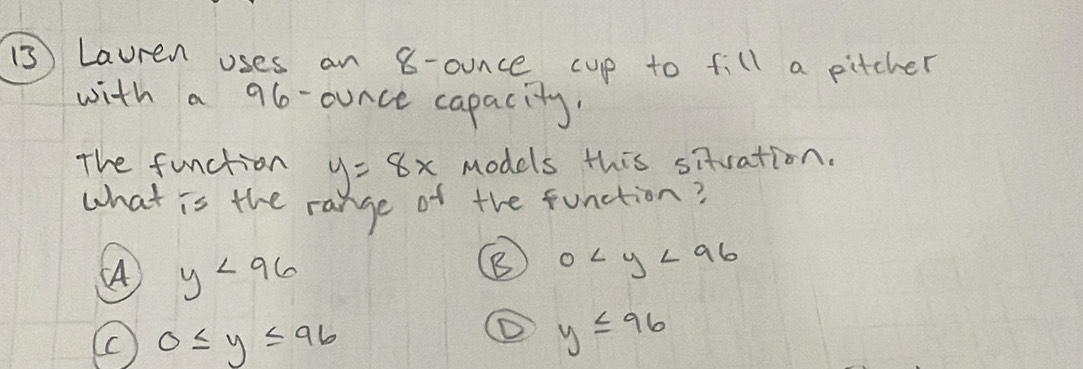 13 Lauren uses an 8-ounce cup to fill a pitcher
with a 96-ounce capacity.
The function y = 8x models this situation.
What is the range of the function?
A y < 96 B 0 < y < 96
C 0 ≤ y ≤ 96 D y ≤ 96